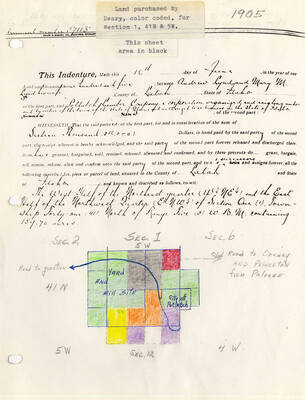 Land purchased by
Deary, color coded, for
Section 1, 41N & 5W.
1905
This sheet
area in black
This Indenture, Made this 12th day of June in the year of our
Lord one thousand nine hundred and five between Andrew
and Mary M.
County of Latah State of Idaho
of the first part, and Potlatch Lumber Company a corporation organized and
of the second part:
WITNESSETH, That the said part of the first part, for and in consideration of the sum of
Sixteen Thousand Dollars, in hand paid by the said party of the second
part, the receipt whereof is hereby acknowledged, and the said party of the second part forever released and discharged therefrom
have granted, bargained, sold, remised, released, aliened and confirmed, and by these presents do grant, bargain,
sell, remise, release, alien and confirm unto the said party of the second part, and to successors and assigns forever, all the
following described lot, piece or parcel of land, situated in the County of Latah and State
of Idaho, and known and described as follows, to-wit:
The West Half of the Northeast quarter (W½ NE¼) and the East
Half of the Northwest Quarter (E½ NW¼) of Section One (1), Town-
ship Forty-one (41) North of Range Five (5) W. B. M. containing
159.70 acres.
SEC. 2
SEC. 1
5 W
SEC. 6
Road to Deary
and Princeton
from Palouse
41 N
Yard
and
Mill Site
City of
Potlatch
5 W
SEC. 12
4 W